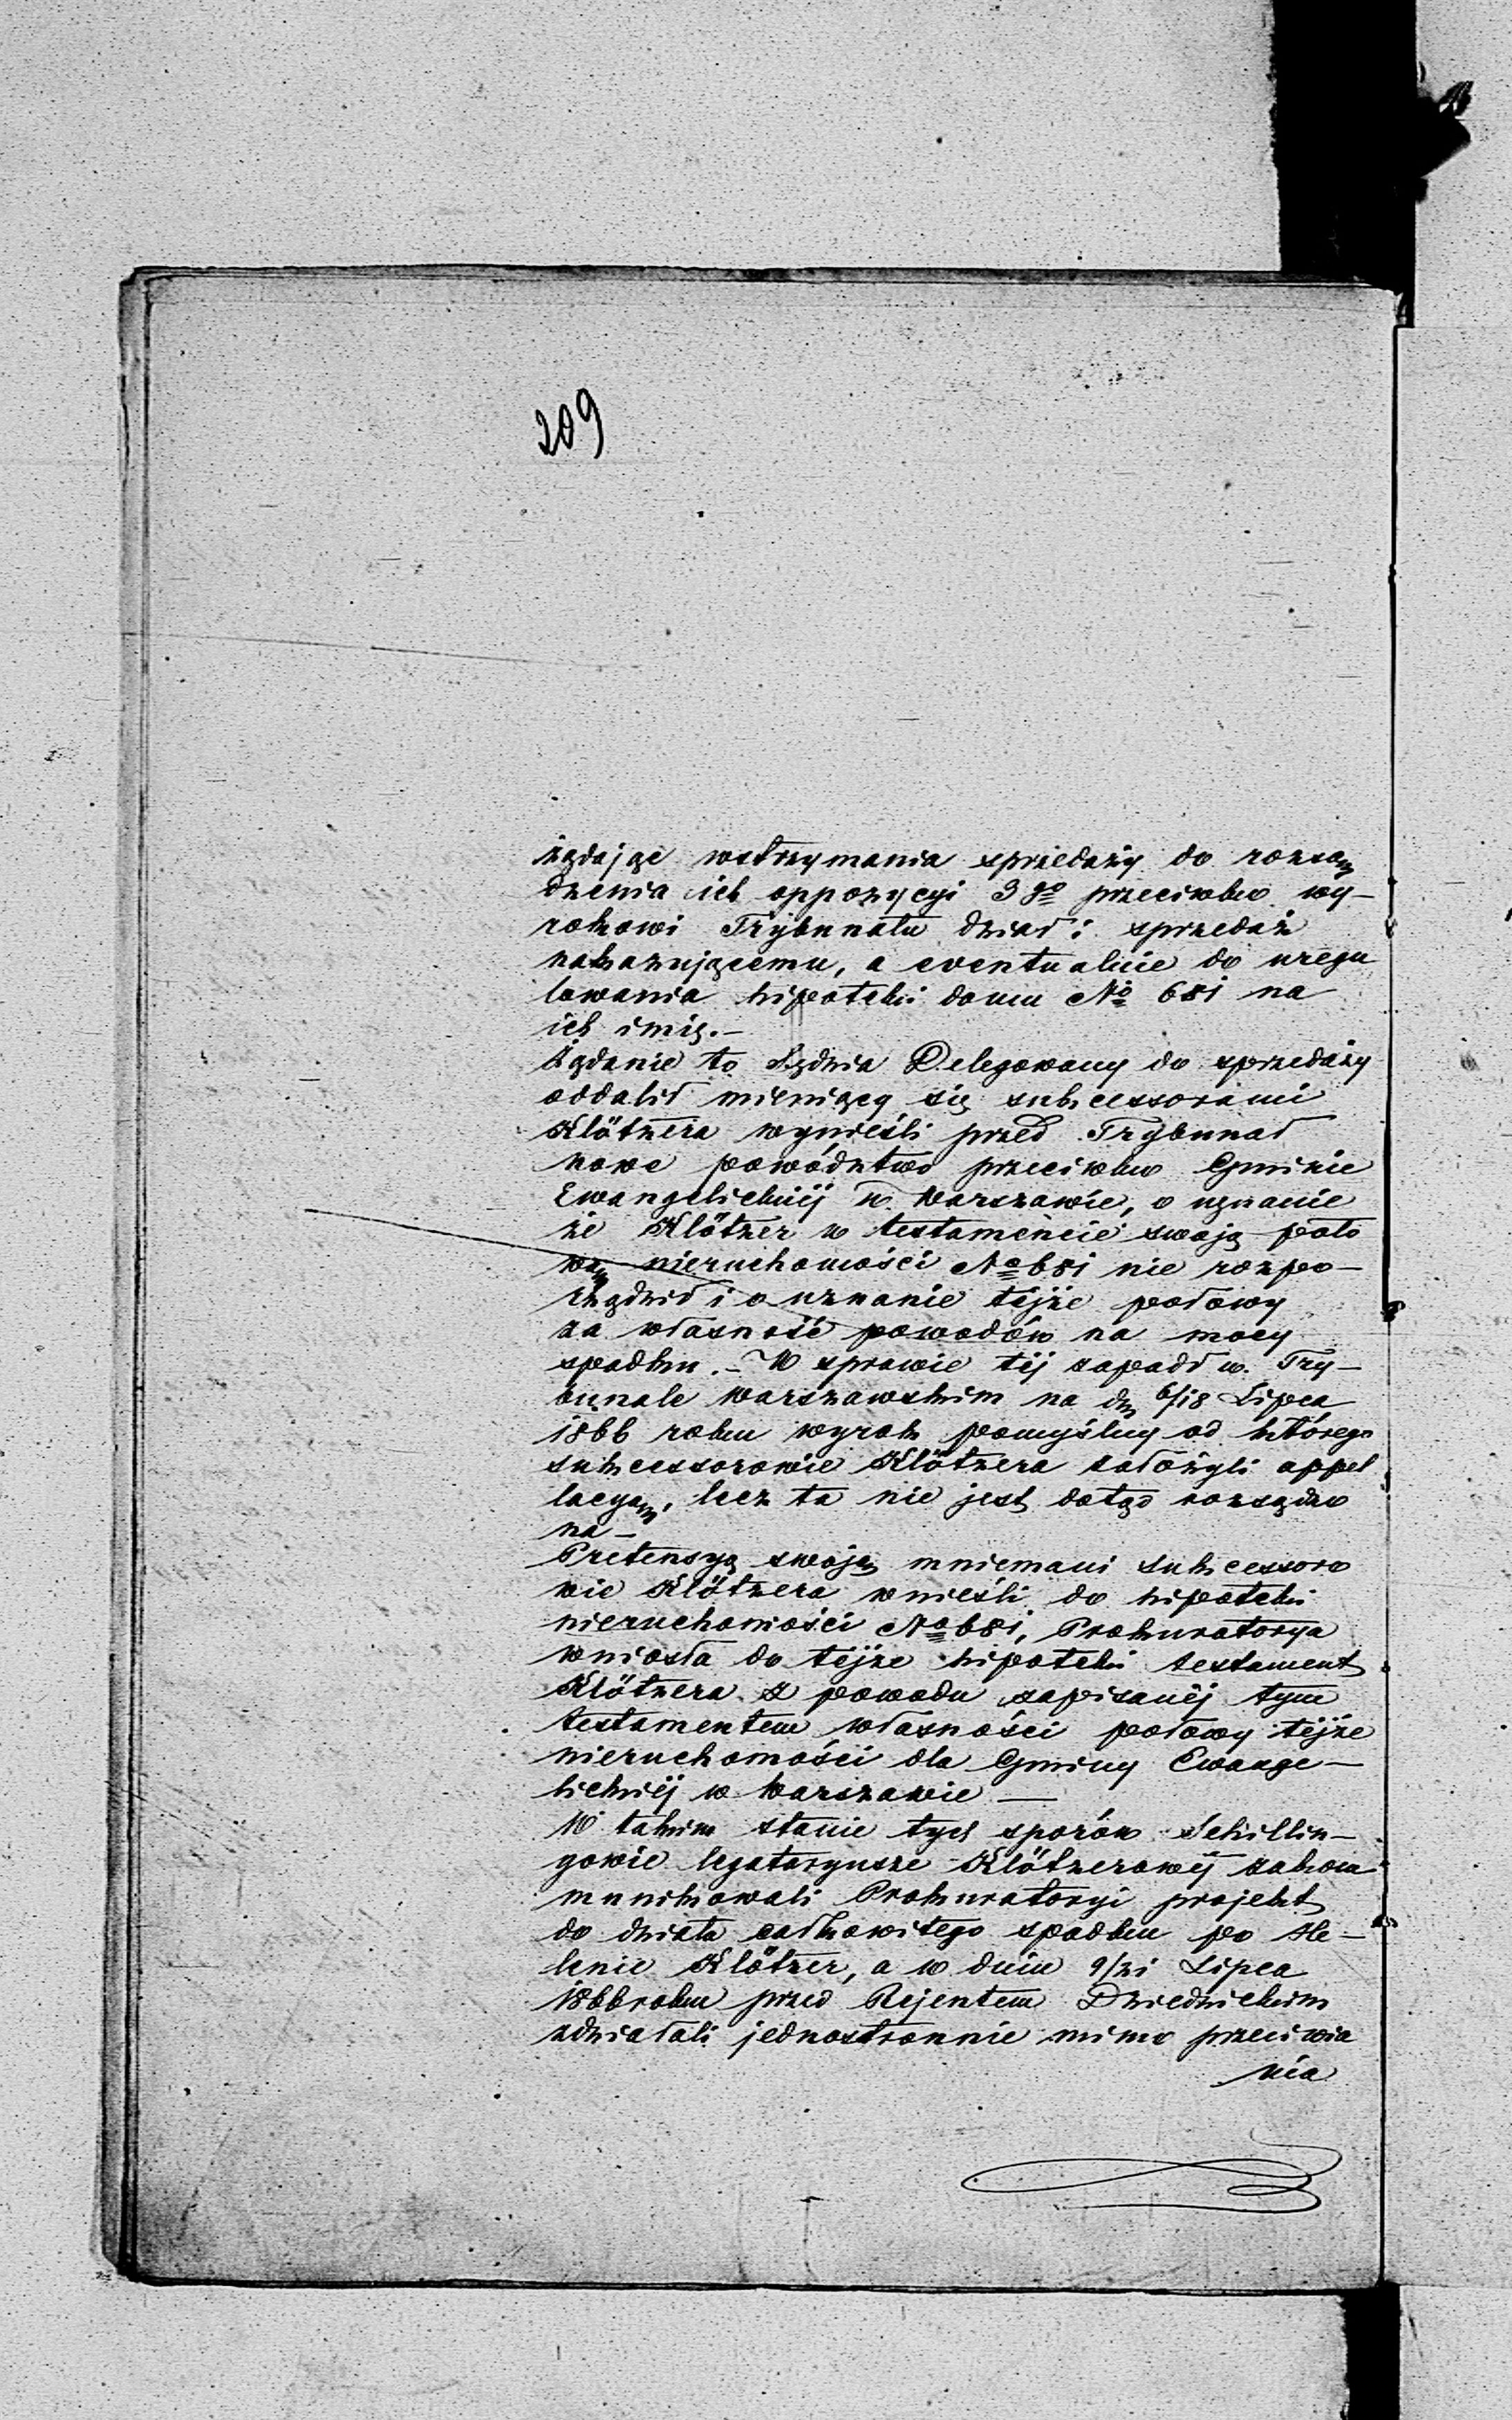 209
żądając wstrzymania sprzedaży do rozsą
dzenia ich oppozycyi 3go przeciwko wy-
rokowi Trybunału dział i sprzedaż
nakazującemu, a eventualnie do uregu
lowania hipoteki domu No 681 na
ich imię.-
Żądanie to Sędzia Delegowany do sprzedaży
oddalił mieniący się sukcessorami
Klötzera wynieśli przed Trybunał
nowe powództwo przeciwko Gminie
Ewangelickiéj w Warszawie, o uznanie
że Klötzer w testamencie swoją poło
wą nieruchomości No 681 nie rozpo-
rządził i o uznanie téjże połowy
za własność powodów na mocy
spadku.- W sprawie téj zapadł w Try-
bunale Warszawskim na dn 6/18 Lipca
1866 roku wyrok pomyślny od którego
sukcessorowie Klötzera założyli appel
lacyą, lecz ta nie jest dotąd rozsądzo
na-
Pretensyą swoją mniemani sukcessoro
wie Klötzera wnieśli do hipoteki
nieruchomości No 681, Prokuratorya
wniosła do téjże hipoteki testament
Klötzera z powodu zapisanéj tym
testamentem własności połowy téjże
nieruchomości dla Gminy Ewange-
lickiéj w Warszawie-
W takim stanie tych sporów Schillin-
gowie legataryusze Klötzerowéj zakom
munikowali Prokuratoryi projekt
do działu całkowitego spadku po He-
lenie Klötzer, a w dniu 9/21 Lipca
1866 roku przed Rejentem Dziedzickim
zdziałali jednostronnie mimo przeciwia
nia